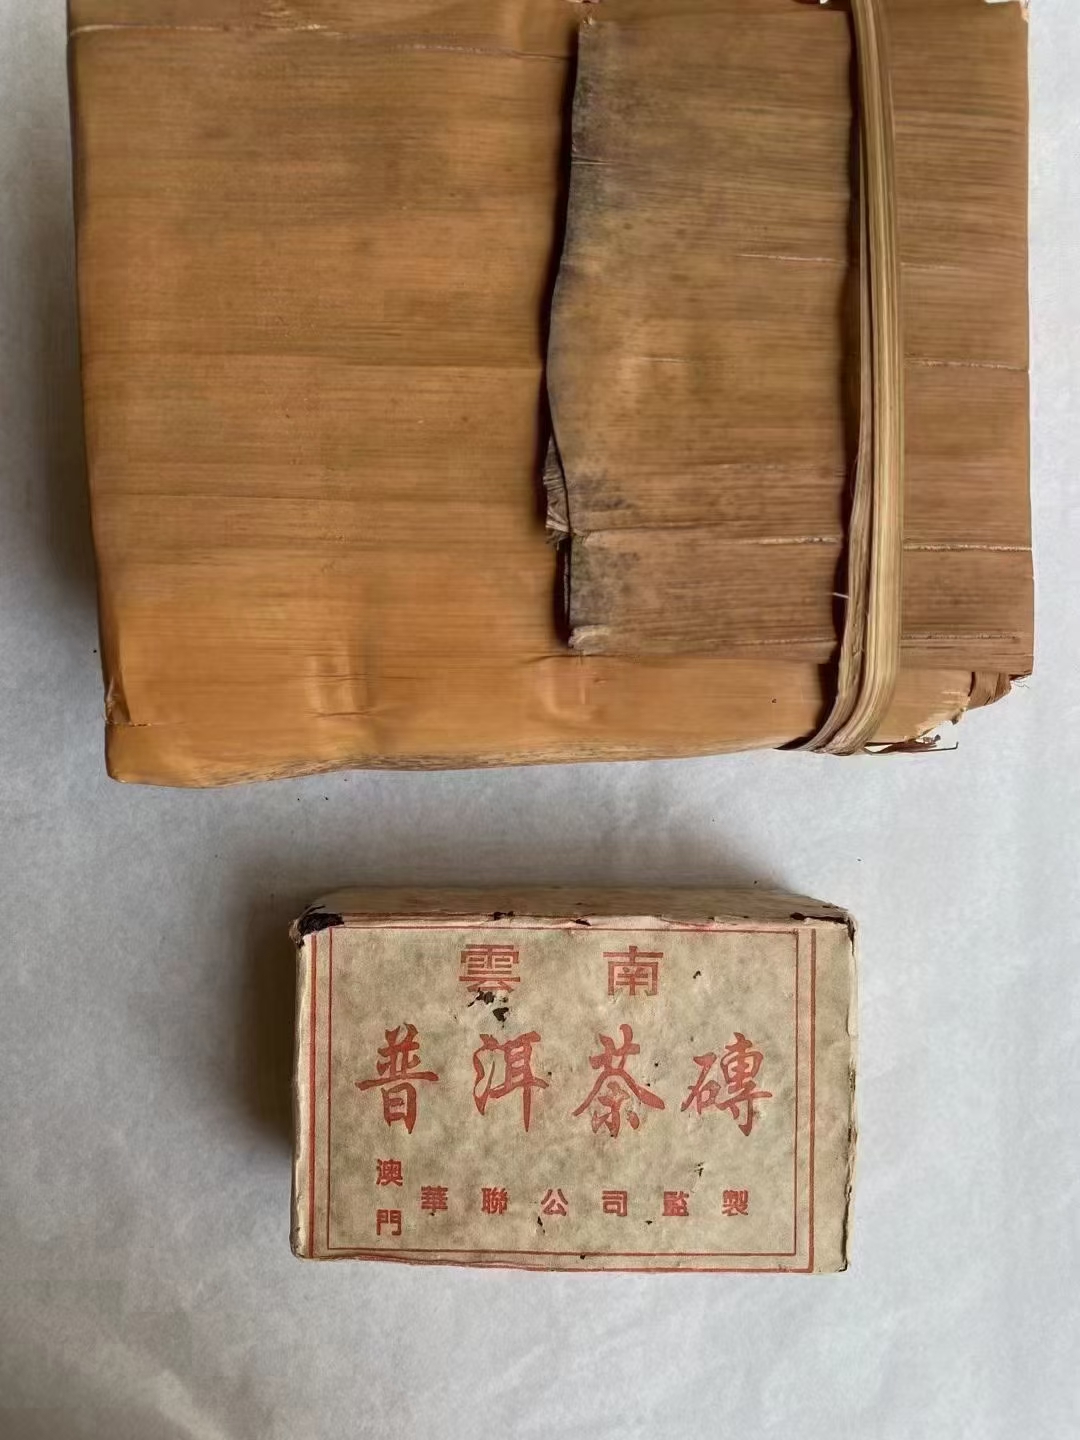 雲南
普洱茶磚
澳門華聯公司監製